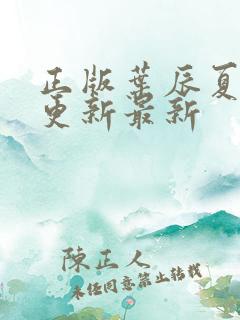 正版葉辰夏
更新最新
陳正人
未经同意禁止转载